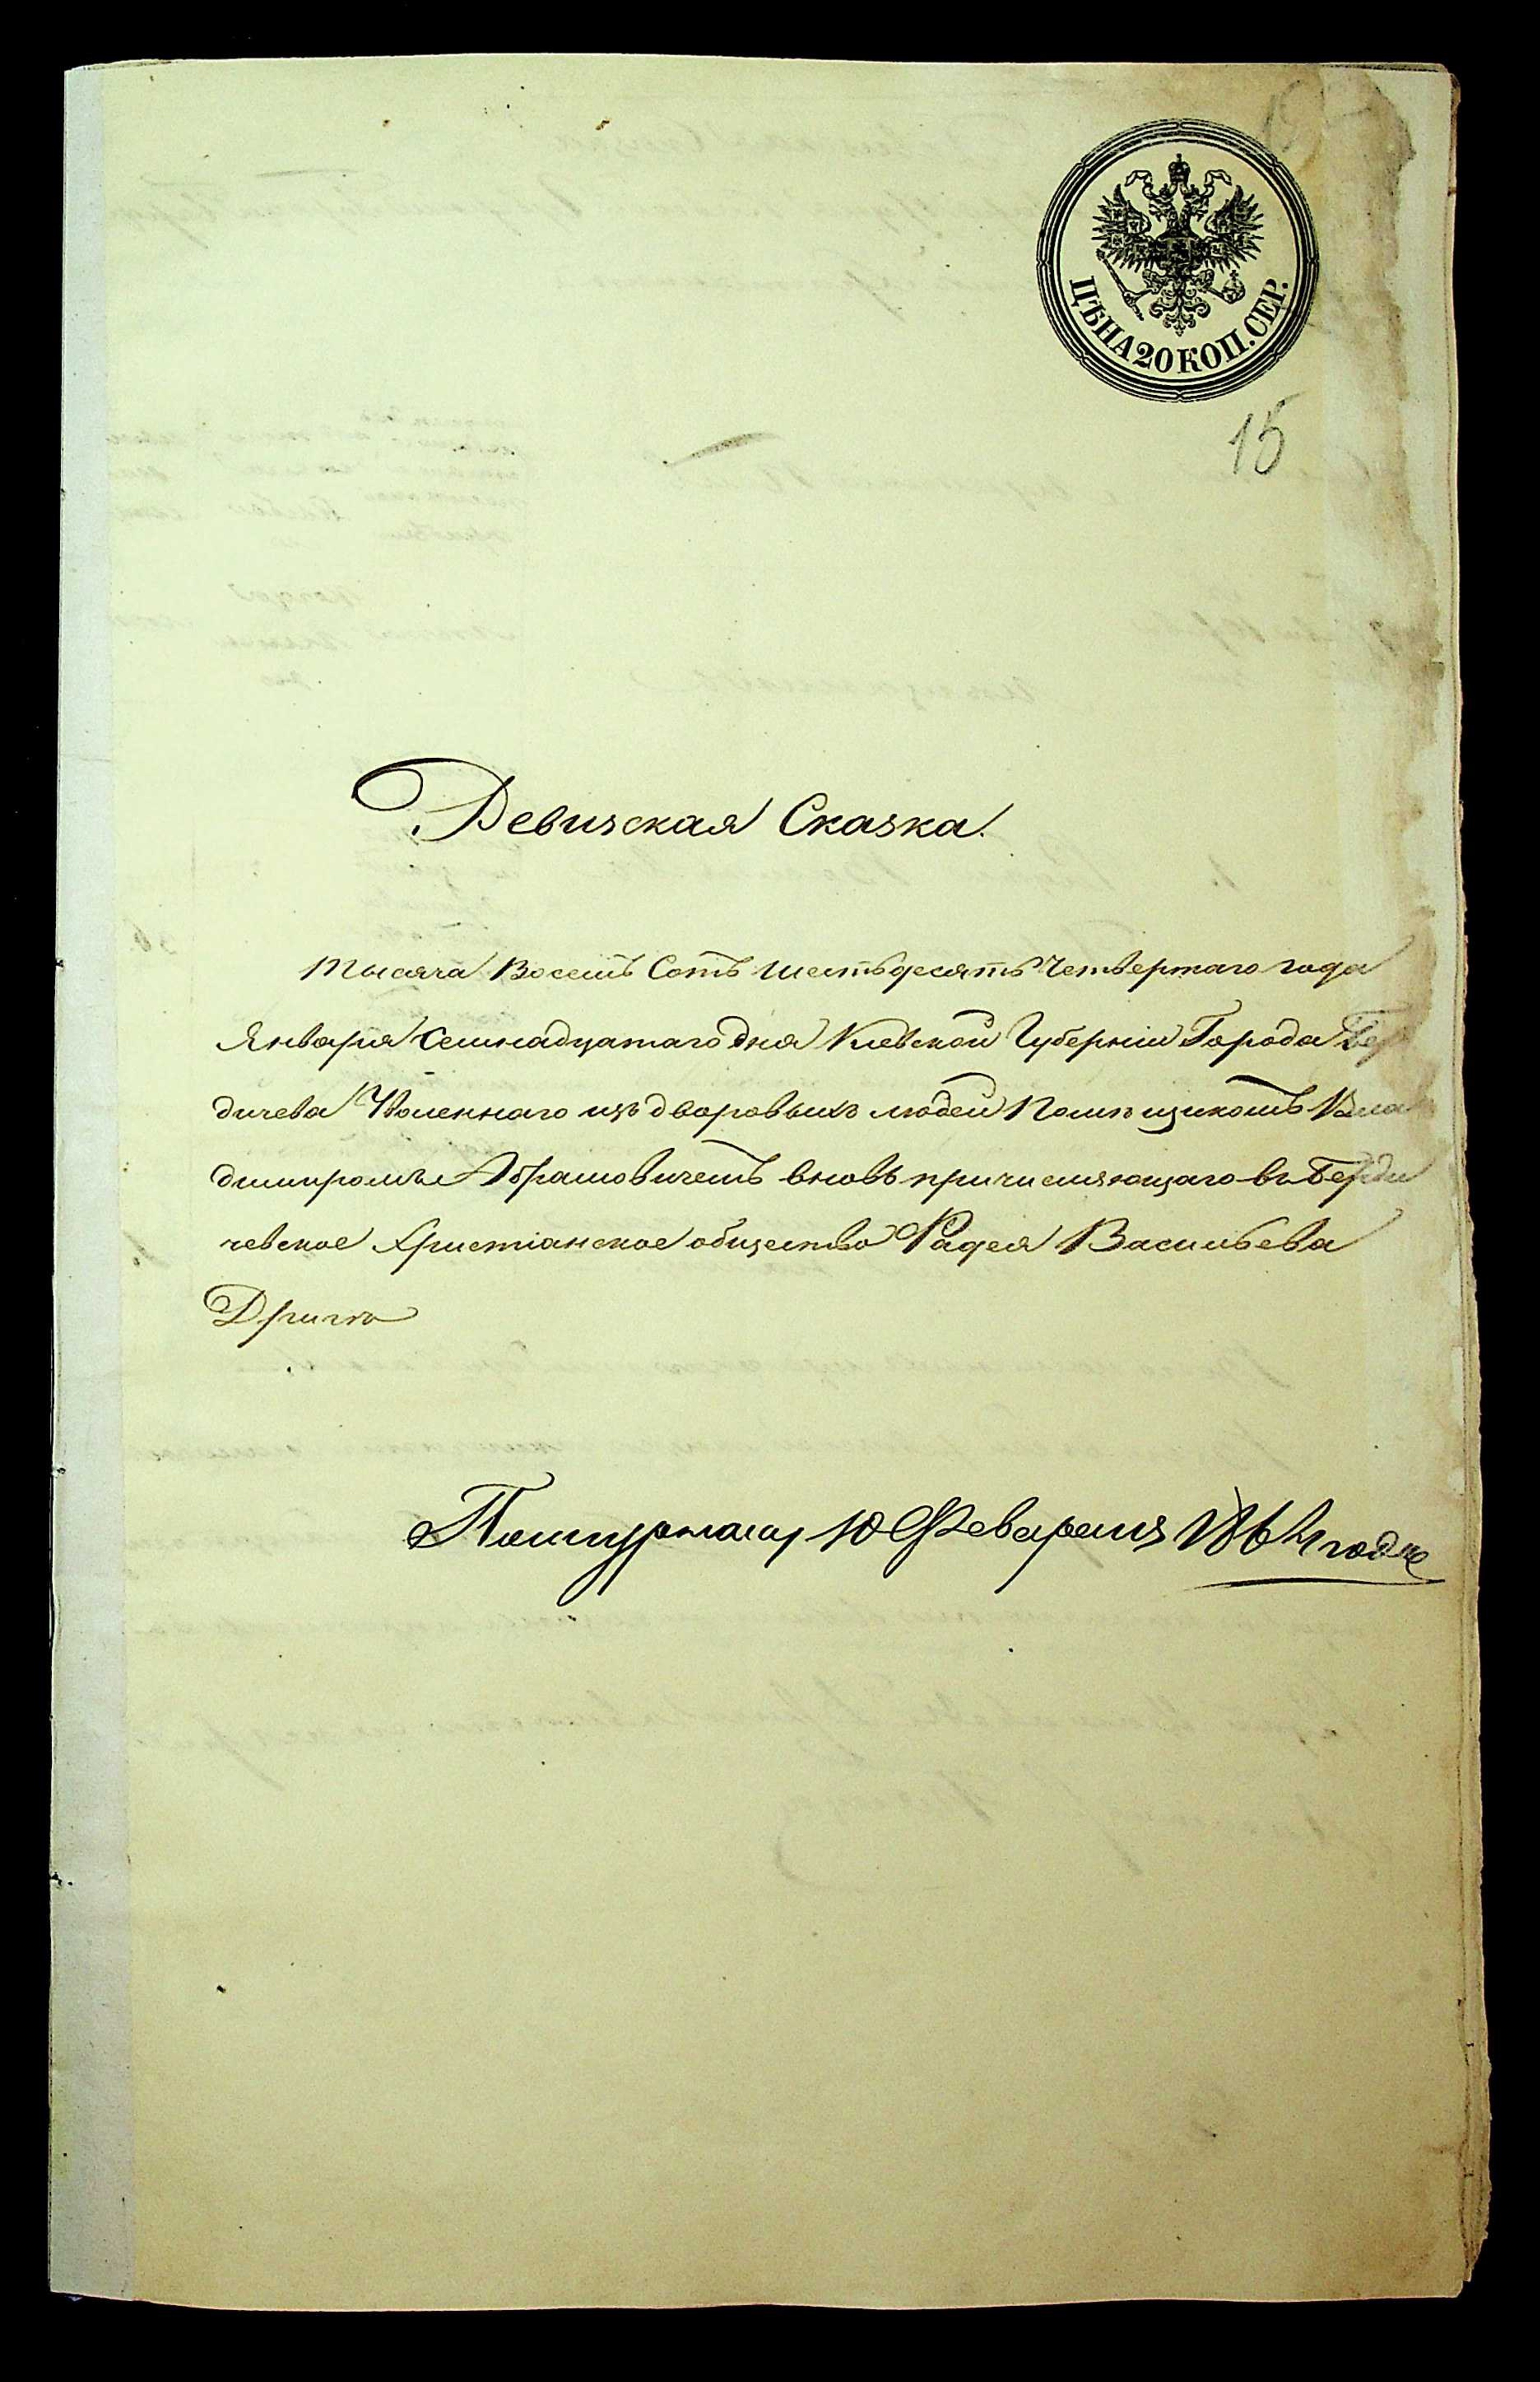 ЦѢНА 20 КОП. СЕР.
15
Девизская Сказка.
Тысяча Восемъ Сотъ шестьдесятъ Четвертаго года
Января семнадцатаго дня Кіевской Губерніи Города Бер
дичева Уволеннаго изъ дворовыхъ людей Помѣщикомъ Вла
димиромъ Абрамовичемъ вновь причисляющаго въ Берди
чевское Христіанское общество Фадея Васильева
Дрига
10 Февраля 1864 года